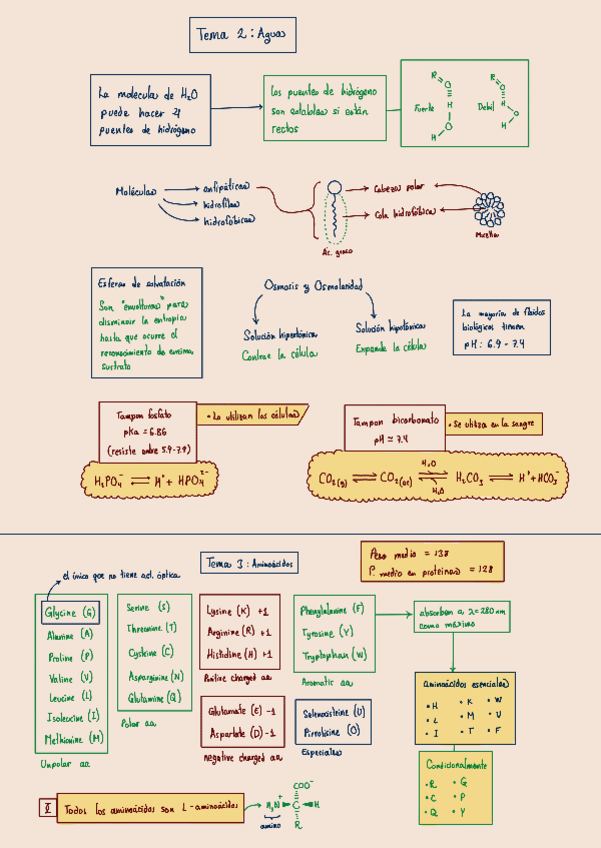 Tema 2: Aguas
La molécula de H₂O
puede hacer 4
puentes de hidrógeno
Los puentes de hidrógeno
son estables si están
rectos
Fuerte
R
O
H
O
H
Debil
R
O
H
O
H
Moléculas
anfipáticas
hidrofilas
hidrofóbicas
Ác. graso
Cabeza polar
Cola hidrofóbica
Micella
Esferas de solvatación
Son "envolturas" para
disminuir la entropía
hasta que ocurre el
reconocimiento de enzima,
sustrato
Osmosis y Osmolaridad
Solución hipertónica
Contrae la célula
Solución hipotónica
Expande la célula
La mayoría de fluidos
biológicos tienen
pH: 6.9 - 7.4
Tampon fosfato
pKa = 6.86
(resiste entre 5.9-7.9)
• Lo utilizan las células
H₂PO₄⁻ ⇌ H⁺ + HPO₄²⁻
Tampon bicarbonato
pH = 7.4
• Se utiliza en la sangre
CO₂(g) ⇌ CO₂(ac) ⇌ H₂CO₃ ⇌ H⁺ + HCO₃⁻
H₂O
H₂O
Tema 3: Aminoácidos
Peso medio = 138
P. medio en proteínas = 128
el único que no tiene act. óptica
Glycine (G)
Alanine (A)
Proline (P)
Valine (V)
Leucine (L)
Isoleucine (I)
Methionine (M)
Unpolar aa
Serine (S)
Threonine (T)
Cysteine (C)
Asparginine (N)
Glutamine (Q)
Polar aa
Lysine (K) +1
Arginine (R) +1
Histidine (H) +1
Positive charged aa
Glutamate (E) -1
Aspartate (D) -1
negative charged aa
Phenylalanine (F)
Tyrosine (Y)
Tryptophan (W)
Aromatic aa
Selenocisteine (U)
Pirrolisine (O)
Especiales
absorben a λ=280 nm
como máximo
aminoácidos esenciales
• H • K • W
• L • M • V
• I • T • F
Condicionalmente
• R • G
• C • P
• Q • Y
Todos los aminoácidos son L-aminoácidos
COO⁻
H₃N⁺ C H
R
amino